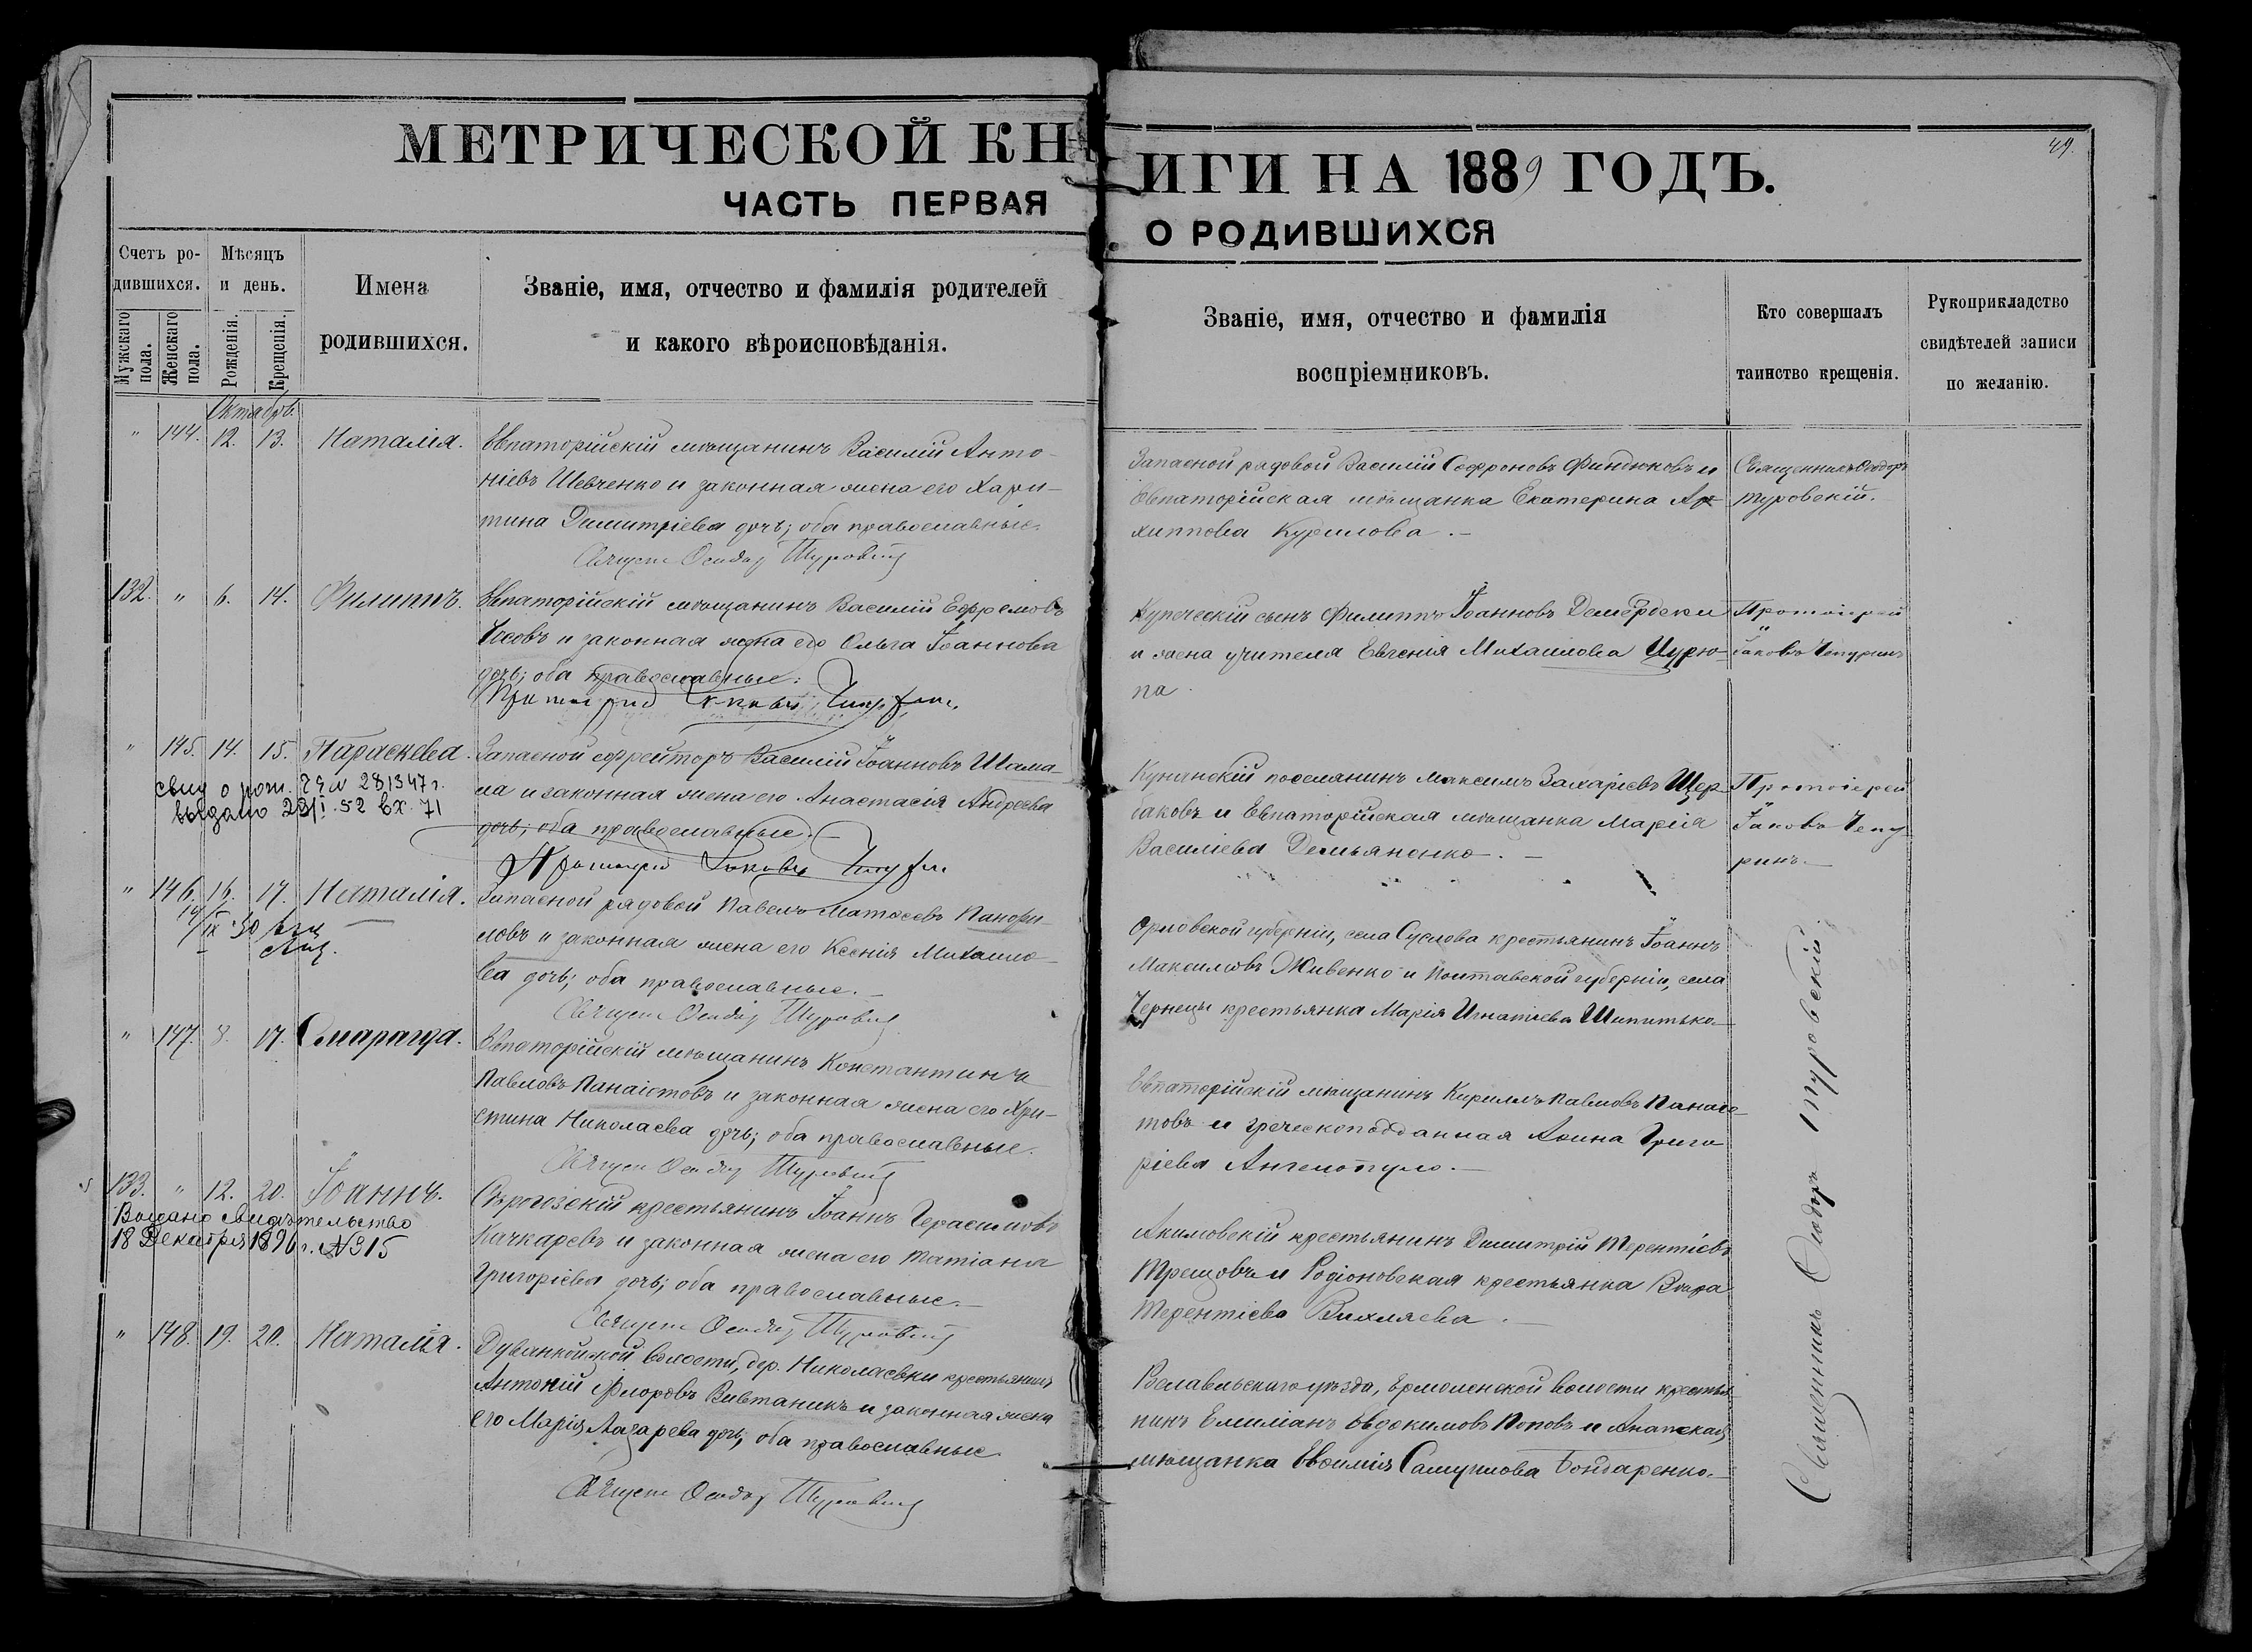 МЕТРИЧЕСКОЙ КНИГИ НА 1889 ГОДЪ.
49.
ЧАСТЬ ПЕРВАЯ О РОДИВШИХСЯ
Счетъ родившихся.
Мужскаго пола.
Женскаго пола.
Мѣсяцъ и день.
Рожденія.
Крещенія.
Имена
родившихся.
Званіе, имя, отчество и фамилія родителей
и какого вѣроисповѣданія.
Званіе, имя, отчество и фамилія
воспріемниковъ.
Кто совершалъ
таинство крещенія.
Рукоприкладство
свидѣтелей записи
по желанію.
Октябрь.
" 144. 12. 13. Наталія.
Евпаторійскій мѣщанинъ Василій Анто-
ніевъ Шевченко и законная жена его Хари-
тина Димитріева дочь; оба православные.
Запасной рядовой Василій Софроновъ Финдюковъ и
Евпаторійская мѣщанка Екатерина Ар-
хиппова Курилова.
Священникъ Ѳеодоръ
Туровскій.
132. " 6. 14. Филиппъ.
Евпаторійскій мѣщанинъ Василій Ефремовъ
и законная жена его Ольга Іоаннова
дочь; оба православные.
Купеческій сынъ Филиппъ Іоанновъ
и жена учителя Евгенія Михаилова Цурю-
па.
Протоіерей
Іаковъ Чепуринъ
" 145. 14. 15. Параскева.
Запасной ефрейторъ Василій Іоанновъ Шама-
ла и законная жена его Анастасія Андреева
дочь; оба православные.
Протоіерей Іаковъ Чепуринъ
выдано 29/I.52 вх. 71
поселянинъ Максимъ Захаріевъ Щер-
баковъ и Евпаторійская мѣщанка Марія
Василіева Демьяненко.
Протоіерей
Іаковъ Чепу-
ринъ.
" 146. 16. 17. Наталія.
Запасной рядовой Павелъ Матѳеевъ Панфи-
ловъ и законная жена его Ксенія Михаило-
ва дочь; оба православные.
Орловской губерніи, села Суслова крестьянинъ Іоаннъ
Максимовъ Живенко и Полтавской губерніи, села
Чернецы крестьянка Марія Игнатіева Шипитько.
" 147. 8. 17. Смарагда.
Евпаторійскій мѣщанинъ Константинъ
Павловъ Панаіотовъ и законная жена его Хри-
стина Николаева дочь; оба православные.
Евпаторійскій мѣщанинъ Кириллъ Павловъ Панаіо-
товъ и греческоподданная Анна Григо-
ріева Ангелопуло.
133. " 12. 20. Іоаннъ.
Выдано свидѣтельство
18 Декабря 1896 г. №315
Сѣрогозскій крестьянинъ Іоаннъ Герасимовъ
Качкаревъ и законная жена его Татіана
Григоріева дочь; оба православные.
Акимовскій крестьянинъ Димитрій Терентіевъ
Трещовъ и Родіоновская крестьянка Вѣра
Терентіева Вихляева.
" 148. 19. 20. Наталія.
Дуванкойской волости, дер. Николаевки крестьянинъ
Антоній Флоровъ Вивтаникъ и законная жена
его Марія Лазарева дочь; оба православные
уѣзда, Ермолинской волости крестья-
нинъ Емиліанъ Евдокимовъ Поповъ и Анапская
мѣщанка Евѳимія Самуилова Бондаренко.
Священникъ Ѳеодоръ Туровскій